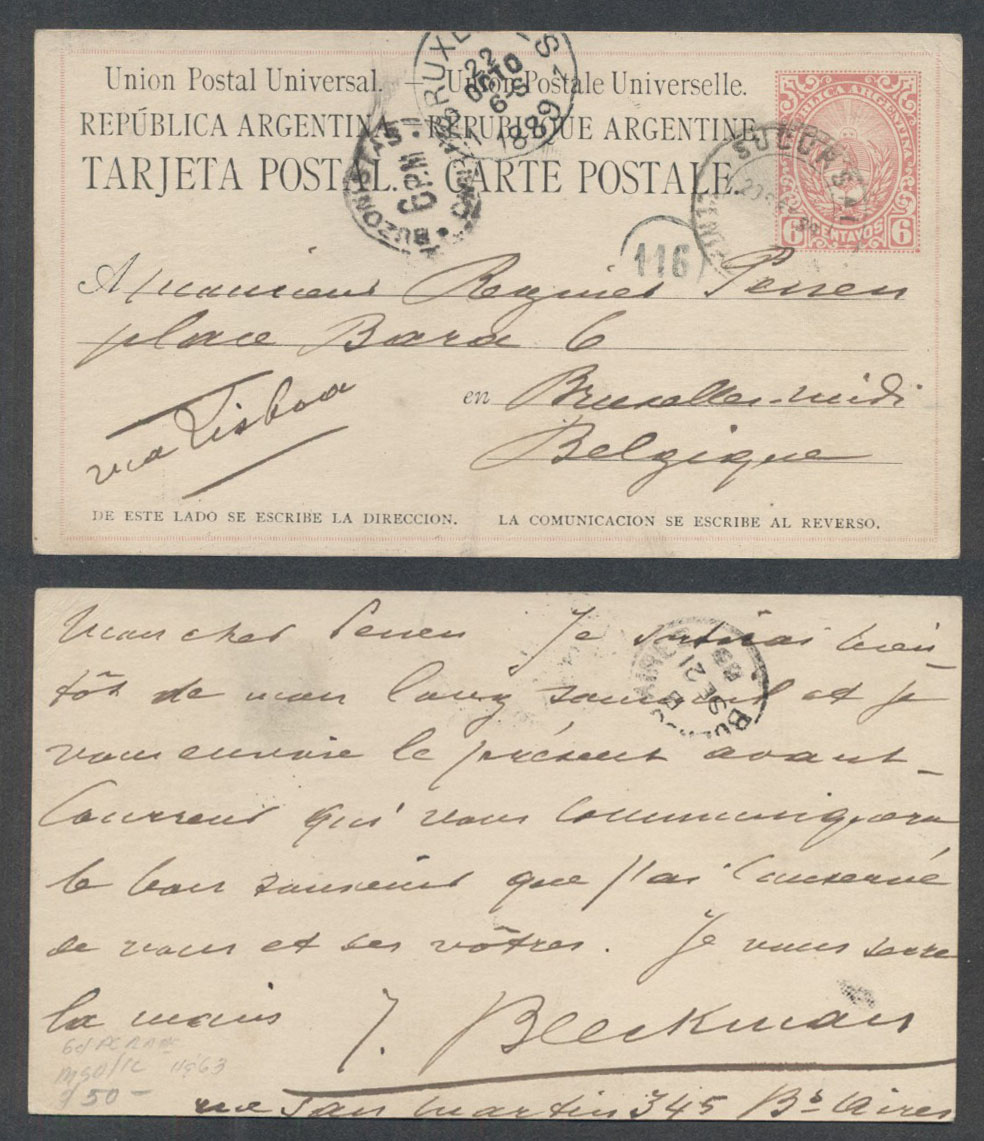 Union Postal Universal. — Union Postale Universelle.
REPÚBLICA ARGENTINA. — RÉPUBLIQUE ARGENTINE.
TARJETA POSTAL. — CARTE POSTALE.
BRUXELLES 1
22 OCTO 6-S 1889
BUZONISTAS
6 P.M.
SUCURSAL
116
REPUBLICA ARGENTINA
6 CENTAVOS 6
A Monsieur Regnier Perren
place Bara 6
via Lisboa
en Bruxelles-midi
Belgique
DE ESTE LADO SE ESCRIBE LA DIRECCION. LA COMUNICACION SE ESCRIBE AL REVERSO.
Mon cher Perren Je sortirai bien-
tôt de mon long sommeil et je
vous envoie le présent avant-
Coureur qui vous communiquera
le bon souvenir que j'ai Conservé
de vous et des vôtres. Je vous serre
la main J. Bleckman
rue San Martin 345 Bs Aires
BUENOS AIRES
SE 21 89
$50-